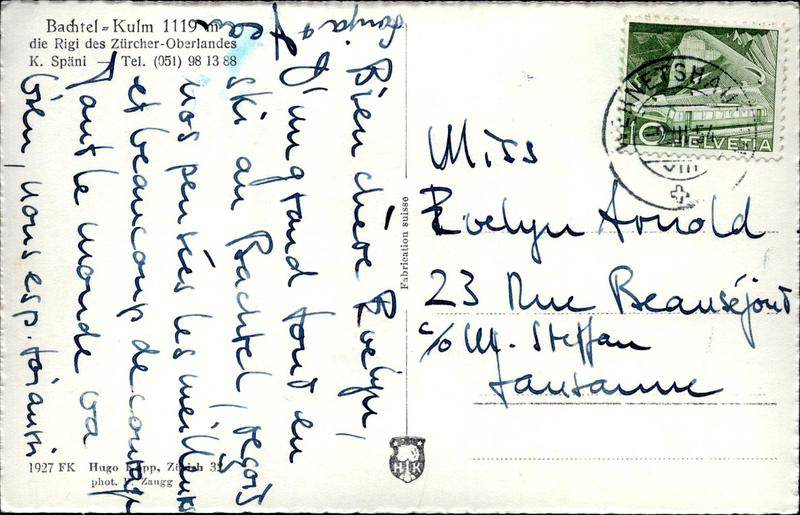 Bachtel-Kulm 1119 m
die Rigi des Zürcher-Oberlandes
K. Späni — Tel. (051) 98 13 88
Bien chère Evelyn,
D'un grand tour en
ski au Bachtel, reçois
nos pensées les meilleures
et beaucoup de courage
Tout le monde va
bien, nous esp. toi aussi
Sonja +
Jean
1927 FK Hugo Kopp, Zürich 32
phot. Zaugg
Fabrication suisse
HK
10 HELVETIA
Miss
Evelyn Arnold
23 Rue Beauséjour
c/o M. Steffan
Lausanne